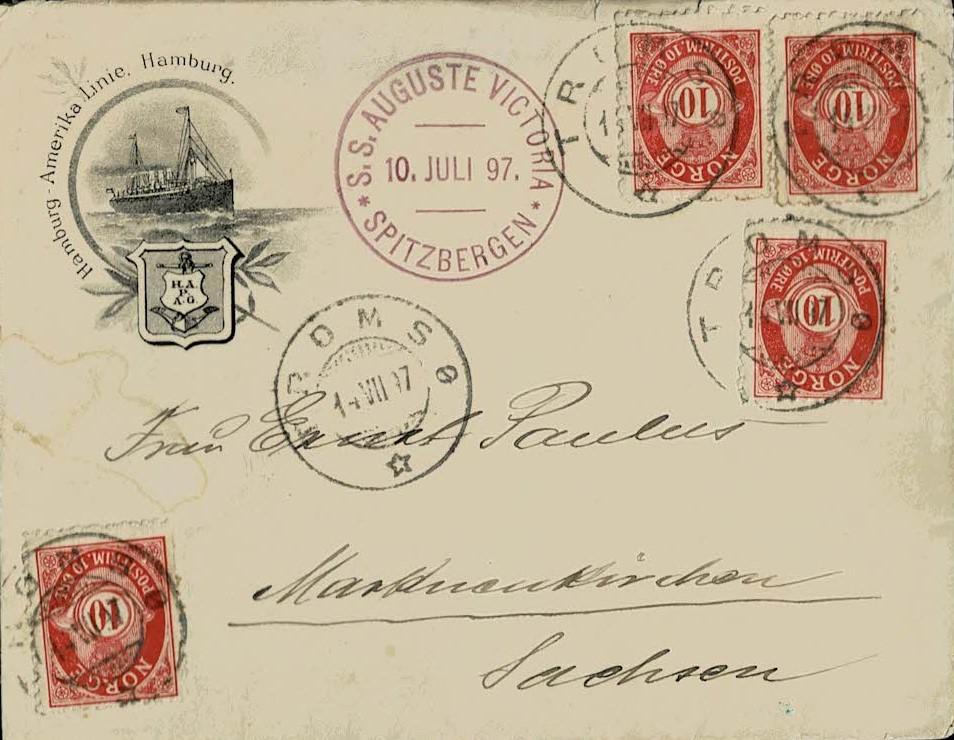 Hamburg-Amerika Linie. Hamburg.
H.A.
P.
A.G.
* S.S. AUGUSTE VICTORIA *
10. JULI 97.
SPITZBERGEN
NORGE
POSTFRIM. 10 ØRE
10
NORGE
POSTFRIM. 10 ØRE
10
NORGE
POSTFRIM. 10 ØRE
10
TROMSØ
ROMSØ
14 VII 97
Frau Ernst Paulus
Markneukirchen
Sachsen
NORGE
POSTFRIM. 10 ØRE
10